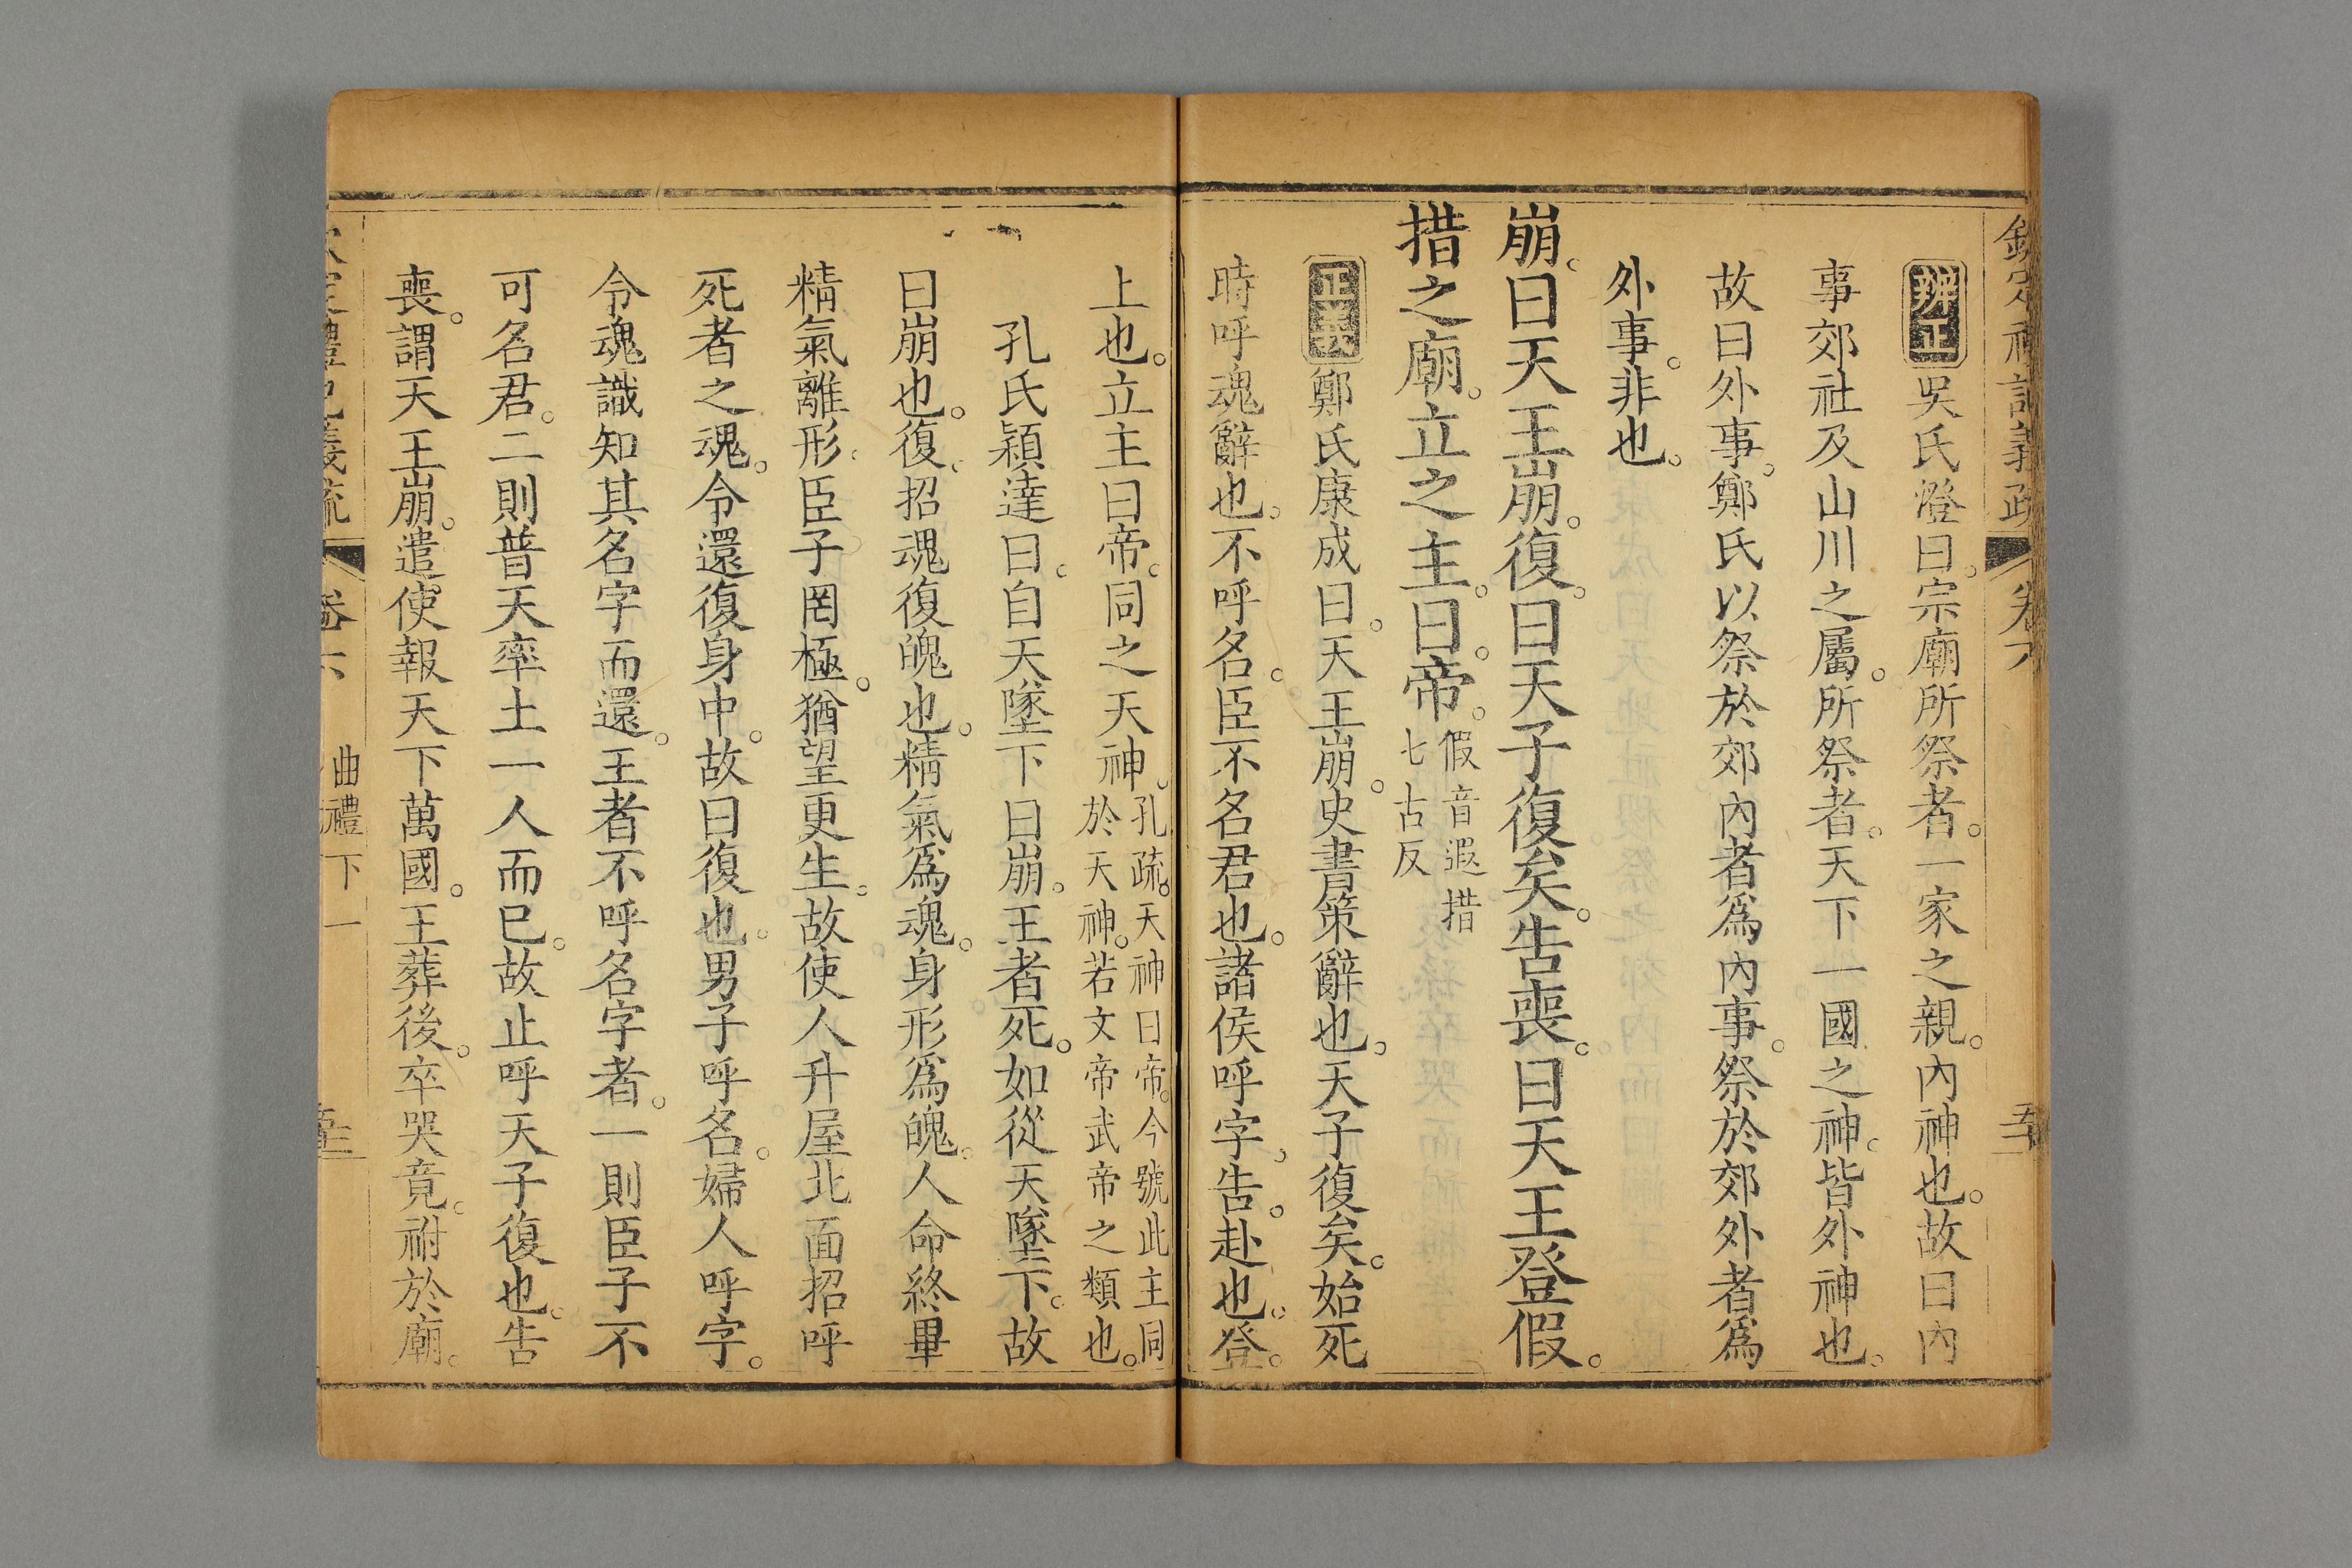 欽定禮記義疏 卷六
辨正吳氏澄曰。宗廟所祭者。一家之親。內神也。故曰內
事郊社及山川之屬。所祭者。天下一國之神。皆外神也。
故曰外事。鄭氏以祭於郊內者爲內事。祭於郊外者爲
外事。非也。
崩。曰天王崩。復。曰天子復矣。告喪。曰天王登假。
措之廟。立之主。曰。帝。假音遐措
七古反
正義鄭氏康成曰。天王崩。史書策辭也。天子復矣。始死
時呼魂辭也。不呼名。臣不名君也。諸侯呼字。告。赴也。登。
上也。立主曰帝。同之天神。孔疏。天神曰帝。今號此主同
於天神。若文帝武帝之類也。
孔氏穎達曰。自天墜下曰崩。王者死。如從天墜下。故
曰崩也。復。招魂復魄也。精氣爲魂。身形爲魄。人命終畢
精氣離形。臣子罔極。猶望更生。故使人升屋北面招呼
死者之魂。令還復身中。故曰復也。男子呼名。婦人呼字。
令魂識知其名字而還。王者不呼名字者。一則臣子不
可名君。二則普天率土一人而已。故止呼天子復也。告
喪。謂天王崩。遣使報天下萬國。王葬後。卒哭竟。祔於廟。
欽定禮記義疏 卷六 曲禮下一